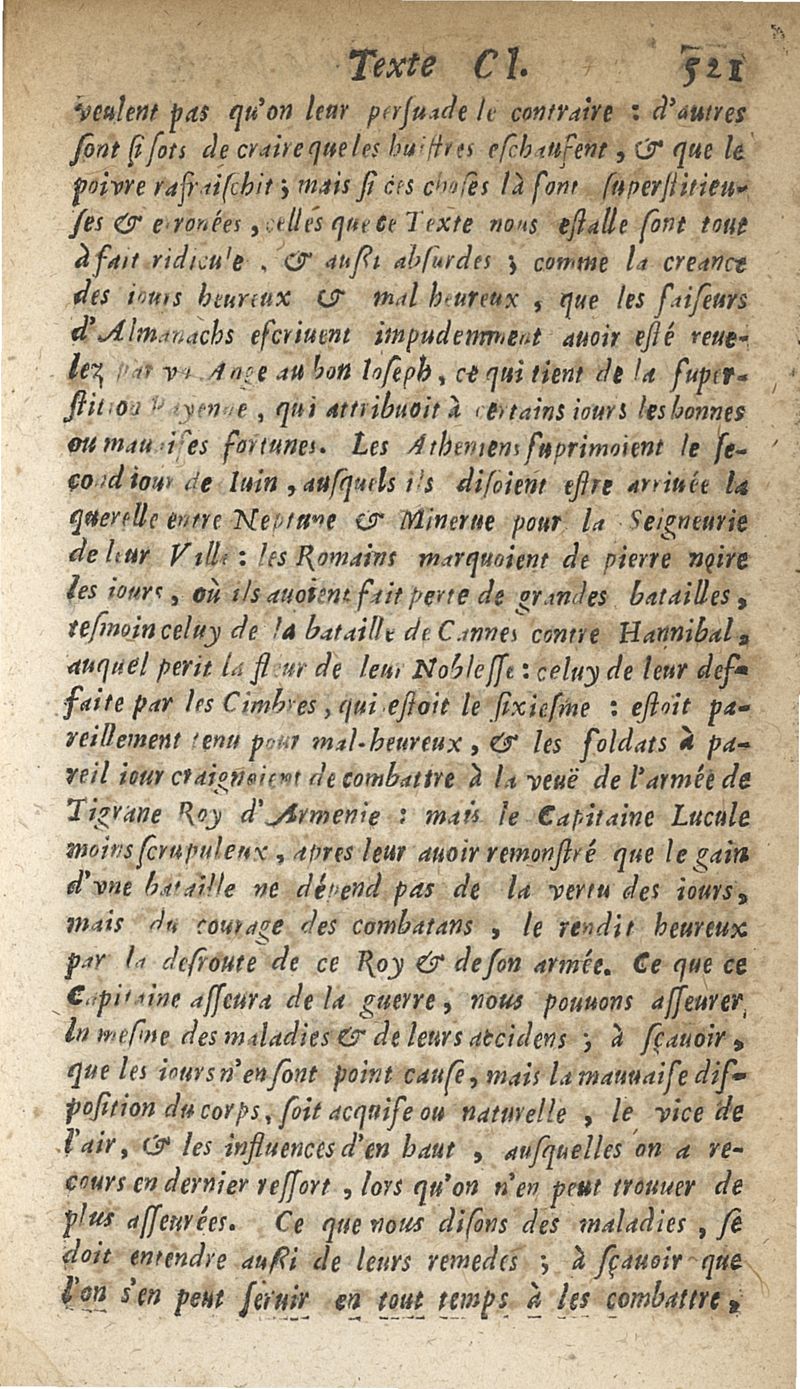 Texte CI. 521
veulent pas qu'on leur persuade le contraire : d'autres
ſont ſi ſots de craire que les huiſtres eſchaufent, & que le
poivre rafraiſchit ; mais ſi ces choſes là ſont ſuperſtitieu-
ſes & eronées, celles que ce Texte nous eſtalle ſont tout
à fait ridicule, & auſſi abſurdes ; comme la creance
des iours heureux & mal heureux, que les faiſeurs
d'Almanachs eſcriuent impudemment auoir eſté reue-
lez par vn Ange au bon Ioſeph, ce qui tient de la ſuper-
ſtition Payenne, qui attribuoit à certains iours les bonnes
ou mauuaiſes fortunes. Les Atheniens ſuprimoient le ſe-
cond iour de Iuin, auſquels ils diſoient eſtre arriuée la
querelle entre Neptune & Minerue pour la Seigneurie
de leur Ville : les Romains marquoient de pierre noire
les iours, où ils auoient fait perte de grandes batailles,
teſmoin celuy de la bataille de Cannes contre Hannibal,
auquel perit la fleur de leur Nobleſſe : celuy de leur def-
faite par les Cimbres, qui eſtoit le ſixieſme : eſtoit pa-
reillement tenu pour mal-heureux, & les ſoldats à pa-
reil iour craignoient de combattre à la veuë de l'armée de
Tigrane Roy d'Armenie : mais le Capitaine Lucule
moins ſcrupuleux, apres leur auoir remonſtré que le gain
d'vne bataille ne dépend pas de la vertu des iours,
mais du courage des combatans, le rendit heureux
par la deſroute de ce Roy & de ſon armée. Ce que ce
Capitaine aſſeura de la guerre, nous pouuons aſſeurer
le meſme des maladies & de leurs accidens ; à ſçauoir,
que les iours n'en ſont point cauſe, mais la mauuaiſe diſ-
poſition du corps, ſoit acquiſe ou naturelle, le vice de
l'air, & les influences d'en haut, auſquelles on a re-
cours en dernier reſſort, lors qu'on n'en peut trouuer de
plus aſſeurées. Ce que nous diſons des maladies, ſe
doit entendre auſſi de leurs remedes ; à ſçauoir que
l'on s'en peut ſeruir en tout temps à les combattre,